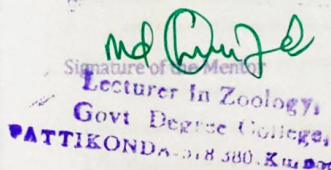 Md
Signature of the Mentor
Lecturer In Zoology,
Govt Degree College,
PATTIKONDA-518 380.